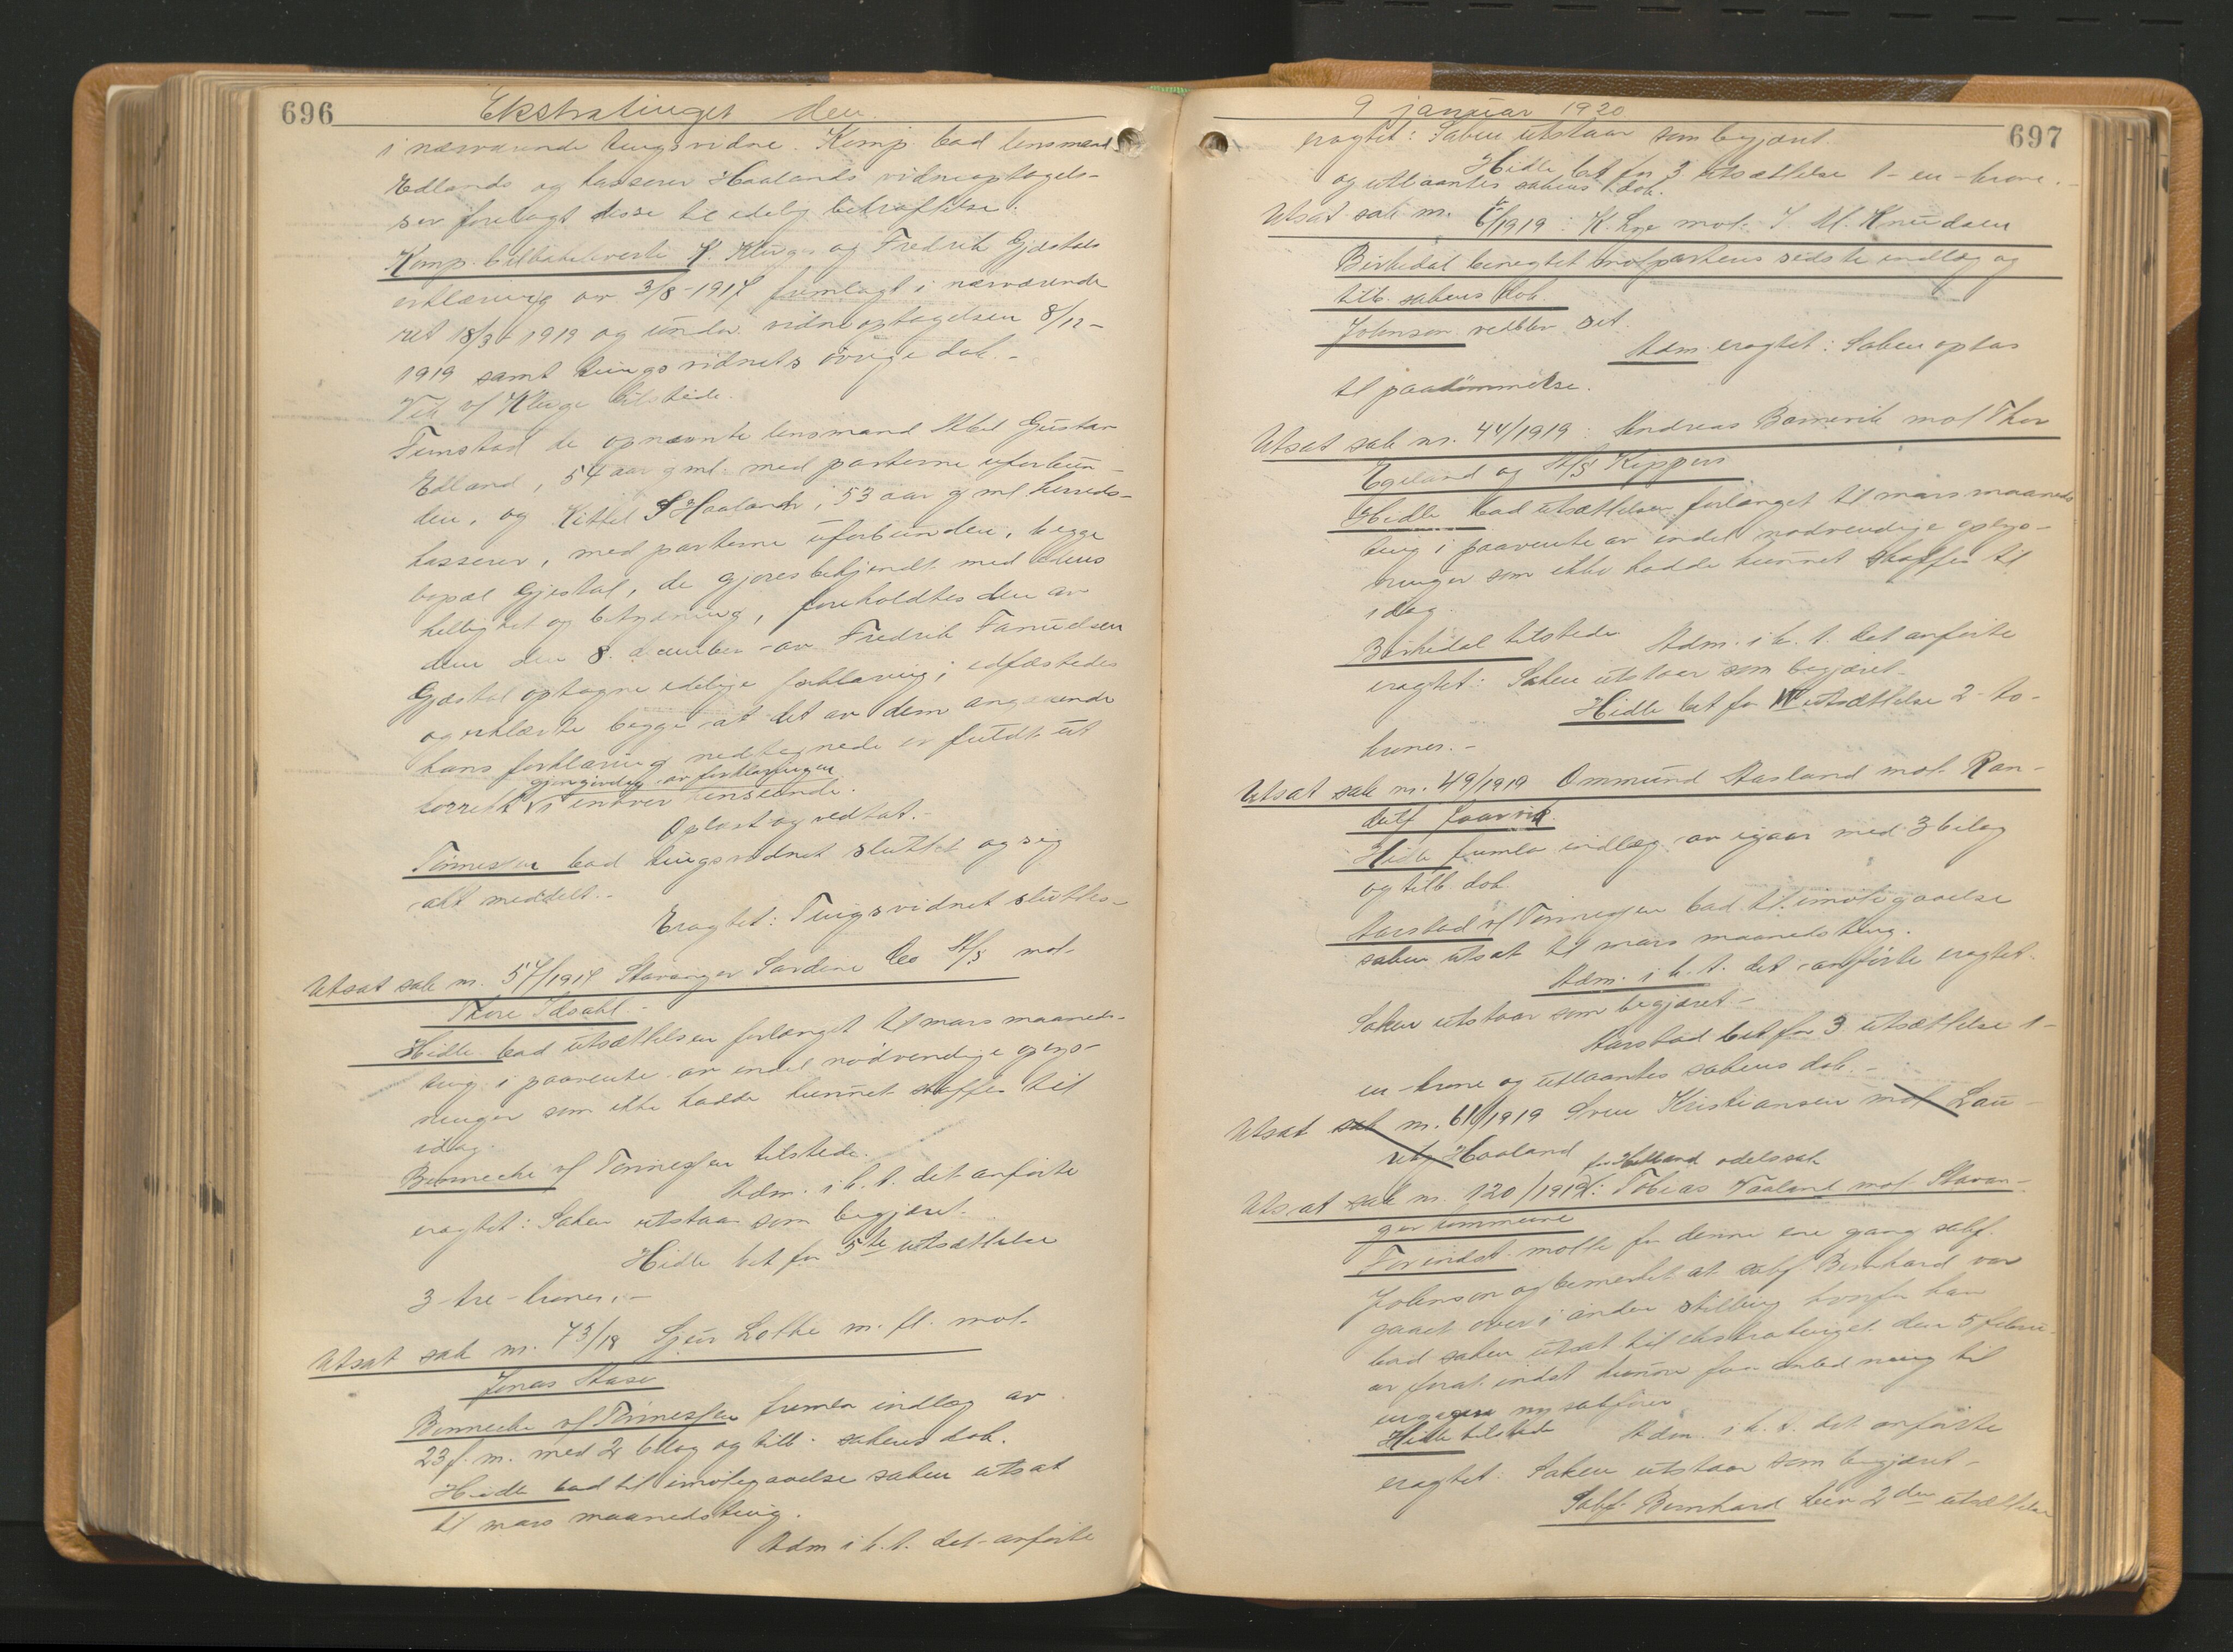 696
Ekstratinget den
i nærværende tingsvidne. Komp. bad lensmand
Edlands og kasserer Haalands vidneoptagel-
ser forelagt disse til edelig bekræftelse.
Komp. tilbakeleverte K. Kluge og Fredrik Gjestals
erklæring av 3/8-1917 fremlagt i nærværende
ret 18/3-1919 og under vidneoptagelsen 8/12-
1919 samt tingsvidnets øvrige dok.-
Vek v/ Kluge tilstede.
Fremstod de opnævnte lensmand Abel Gustav
Edland, 54 aar gml. med parterne uforbun-
den, og Kittel S Haaland, 53 aar gml. herreds-
kasserer, med parterne uforbunden, begge
bopæl Gjestal, de gjøres bekjendt med edens
hellighet og betydning, foreholdtes den av
dem den 8. december av Fredrik Tanudsen
Gjæstal optagne edelige forklaring, edfæstedes
og erklærte begge at det av dem angaaende
hans forklaring nedtegnede er fuldt ut
gjengivelse av forklaringen
korrekt i enhver henseende.
Oplæst og vedtat.-
Tønnessen bad tingsvidnet sluttet og sig
alt meddelt.-
Eragtet: Tingsvidnet sluttes.-
Utsat sak nr. 57/1917 Stavanger Sardine Co A/S mot
Thore Idsahl.-
Hidle bad utsættelsen forlænget til mars maaneds-
ting i paavente av endel nødvendige oplys-
ninger som ikke hadde kunnet skaffes til
idag.
Bennecke v/ Tønnessen tilstede.
Adm. i h. t. det anførte
eragtet: Saken utstaar som begjæret.
Hidle bet for 5te utsættelse
3-tre-kroner.-
Utsat sak nr. 73/18 Sjur Lothe m. fl. mot
Jonas Aase
Bennecke v/ Tønnessen fremla indlæg av
23 f. m. med 2 bilag og tilb. sakens dok.
Hidle bad til imøtegaaelse saken utsat
til mars maanedsting.
Adm i h. t. det anførte
9 januar 1920
697
eragtet: Saken utstaar som begjæret.
Hidle bet for 3 utsættelse 1-en-krone.-
og utlaantes sakens dok.
Utsat sak nr. 6/1919: K. Lye mot J. M. Knudsen
Birkedal benegtet motpartens sidste indlæg og
tilb. sakens dok.
Johnsen vedblev sit.
Adm. eragtet: Saken optas
til paadømmelse.
Utsat sak nr. 44/1919: Andreas Bamerik mot Thor
Egeland og A/S Kippers
Hidle bad utsættelsen forlænget til mars maaneds
ting i paavente av endel nødvendige oplys-
ninger som ikke hadde kunnet skaffes til
idag.
Birkedal tilstede.
Adm. i h. t. det anførte
eragtet: Saken utstaar som begjæret.
Hidle bet for utsættelse 2-to-
kroner.-
Utsat sak nr. 49/1919 Ommund Aasland mot Ran-
dulf Jaarvik.
Hidle fremla indlæg av igaar med 3 bilag
og tilb. dok.
Aarstad v/ Tønnessen bad til imøtegaaelse
saken utsat til mars maanedsting.
Adm. i h. t. det anførte eragtet.
Saken utstaar som begjæret.-
Aarstad bet for 3 utsættelse 1-
en-krone og utlaantes sakens dok.-
Utsat sak nr. 61/1919 Sven Kristiansen mot Lau-
Haaland
odelssak
Utsat sak nr. 120/1919: Tobias Vaaland mot Stavan-
ger kommune
For indst. møtte for denne ene gang sakf.
Johnson og bemerket at sakf Bernhard var
gaaet over i anden stilling hvorfor han
bad saken utsat til ekstratinget den 5 febru-
ar forat indst kunne faa anledning til
engagere ny sakfører
Hidle tilstede
Adm. i h. t. det anførte
eragtet: Saken utstaar som begjæret.-
Sakf. Bernhard 2den utsættelse